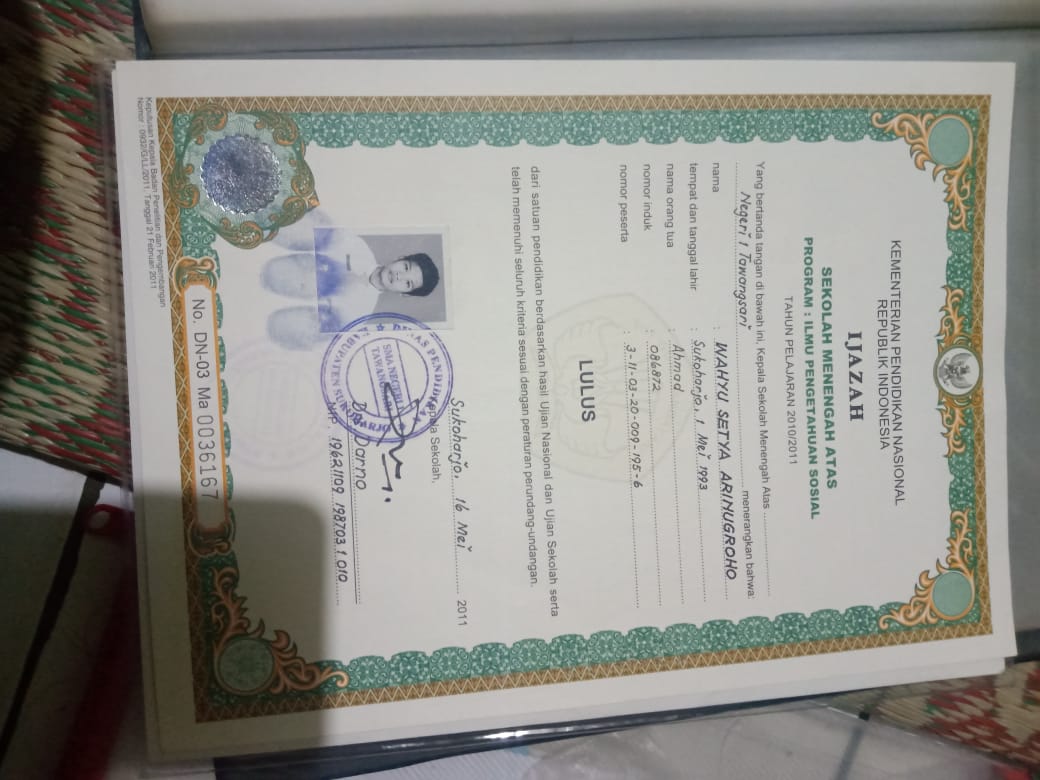 KEMENTERIAN PENDIDIKAN NASIONAL
REPUBLIK INDONESIA
IJAZAH
SEKOLAH MENENGAH ATAS
PROGRAM : ILMU PENGETAHUAN SOSIAL
TAHUN PELAJARAN 2010/2011
Yang bertanda tangan di bawah ini, Kepala Sekolah Menengah Atas
Negeri 1 Tawangsari menerangkan bahwa:
nama : WAHYU SETYA ARINUGROHO
tempat dan tanggal lahir : Sukoharjo, 1 Mei 1993
nama orang tua : Ahmad
nomor induk : 086872
nomor peserta : 3-11-03-20-009-195-6
LULUS
dari satuan pendidikan berdasarkan hasil Ujian Nasional dan Ujian Sekolah serta
telah memenuhi seluruh kriteria sesuai dengan peraturan perundang-undangan.
Sukoharjo, 16 Mei 2011
Kepala Sekolah,
DINAS PENDIDIKAN
SMA NEGERI 1
KABUPATEN SUKOHARJO
Darno
NIP. 19621109 198703 1 010
No. DN-03 Ma 0036167
Keputusan Kepala Badan Penelitian dan Pengembangan
Nomor : 0932/G/LL/2011, Tanggal 21 Februari 2011